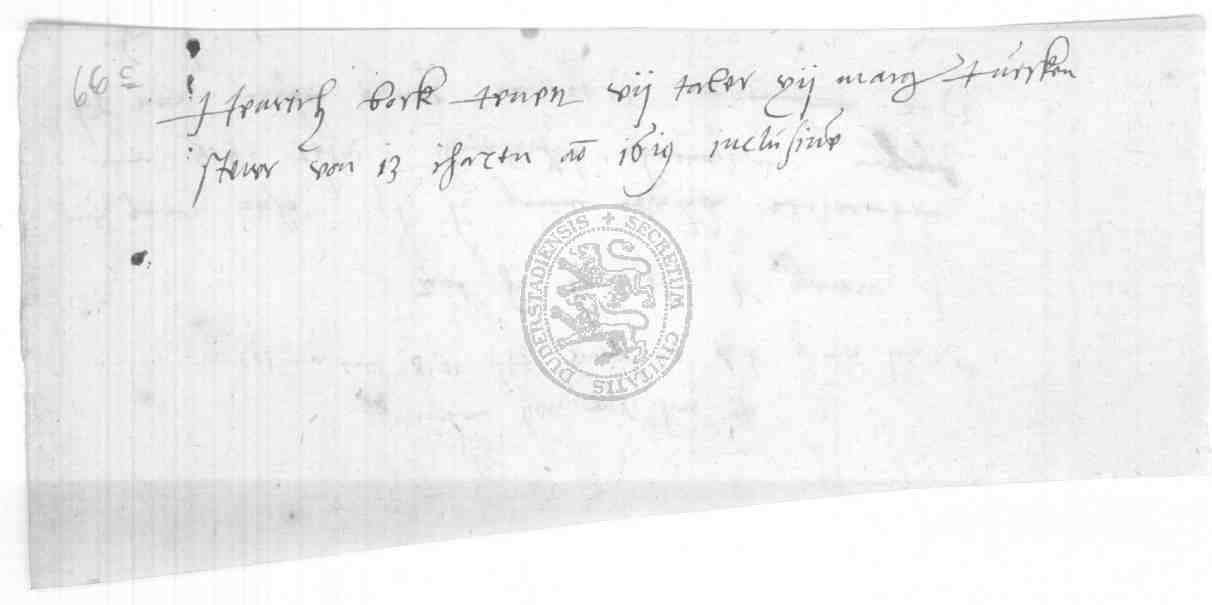 Henrich bork tenen vij taler xij marg Türcken
stewer von 13 iharen ao 1619 inclusiue
SECRETUM CIVITATIS DUDERSTADIENSIS